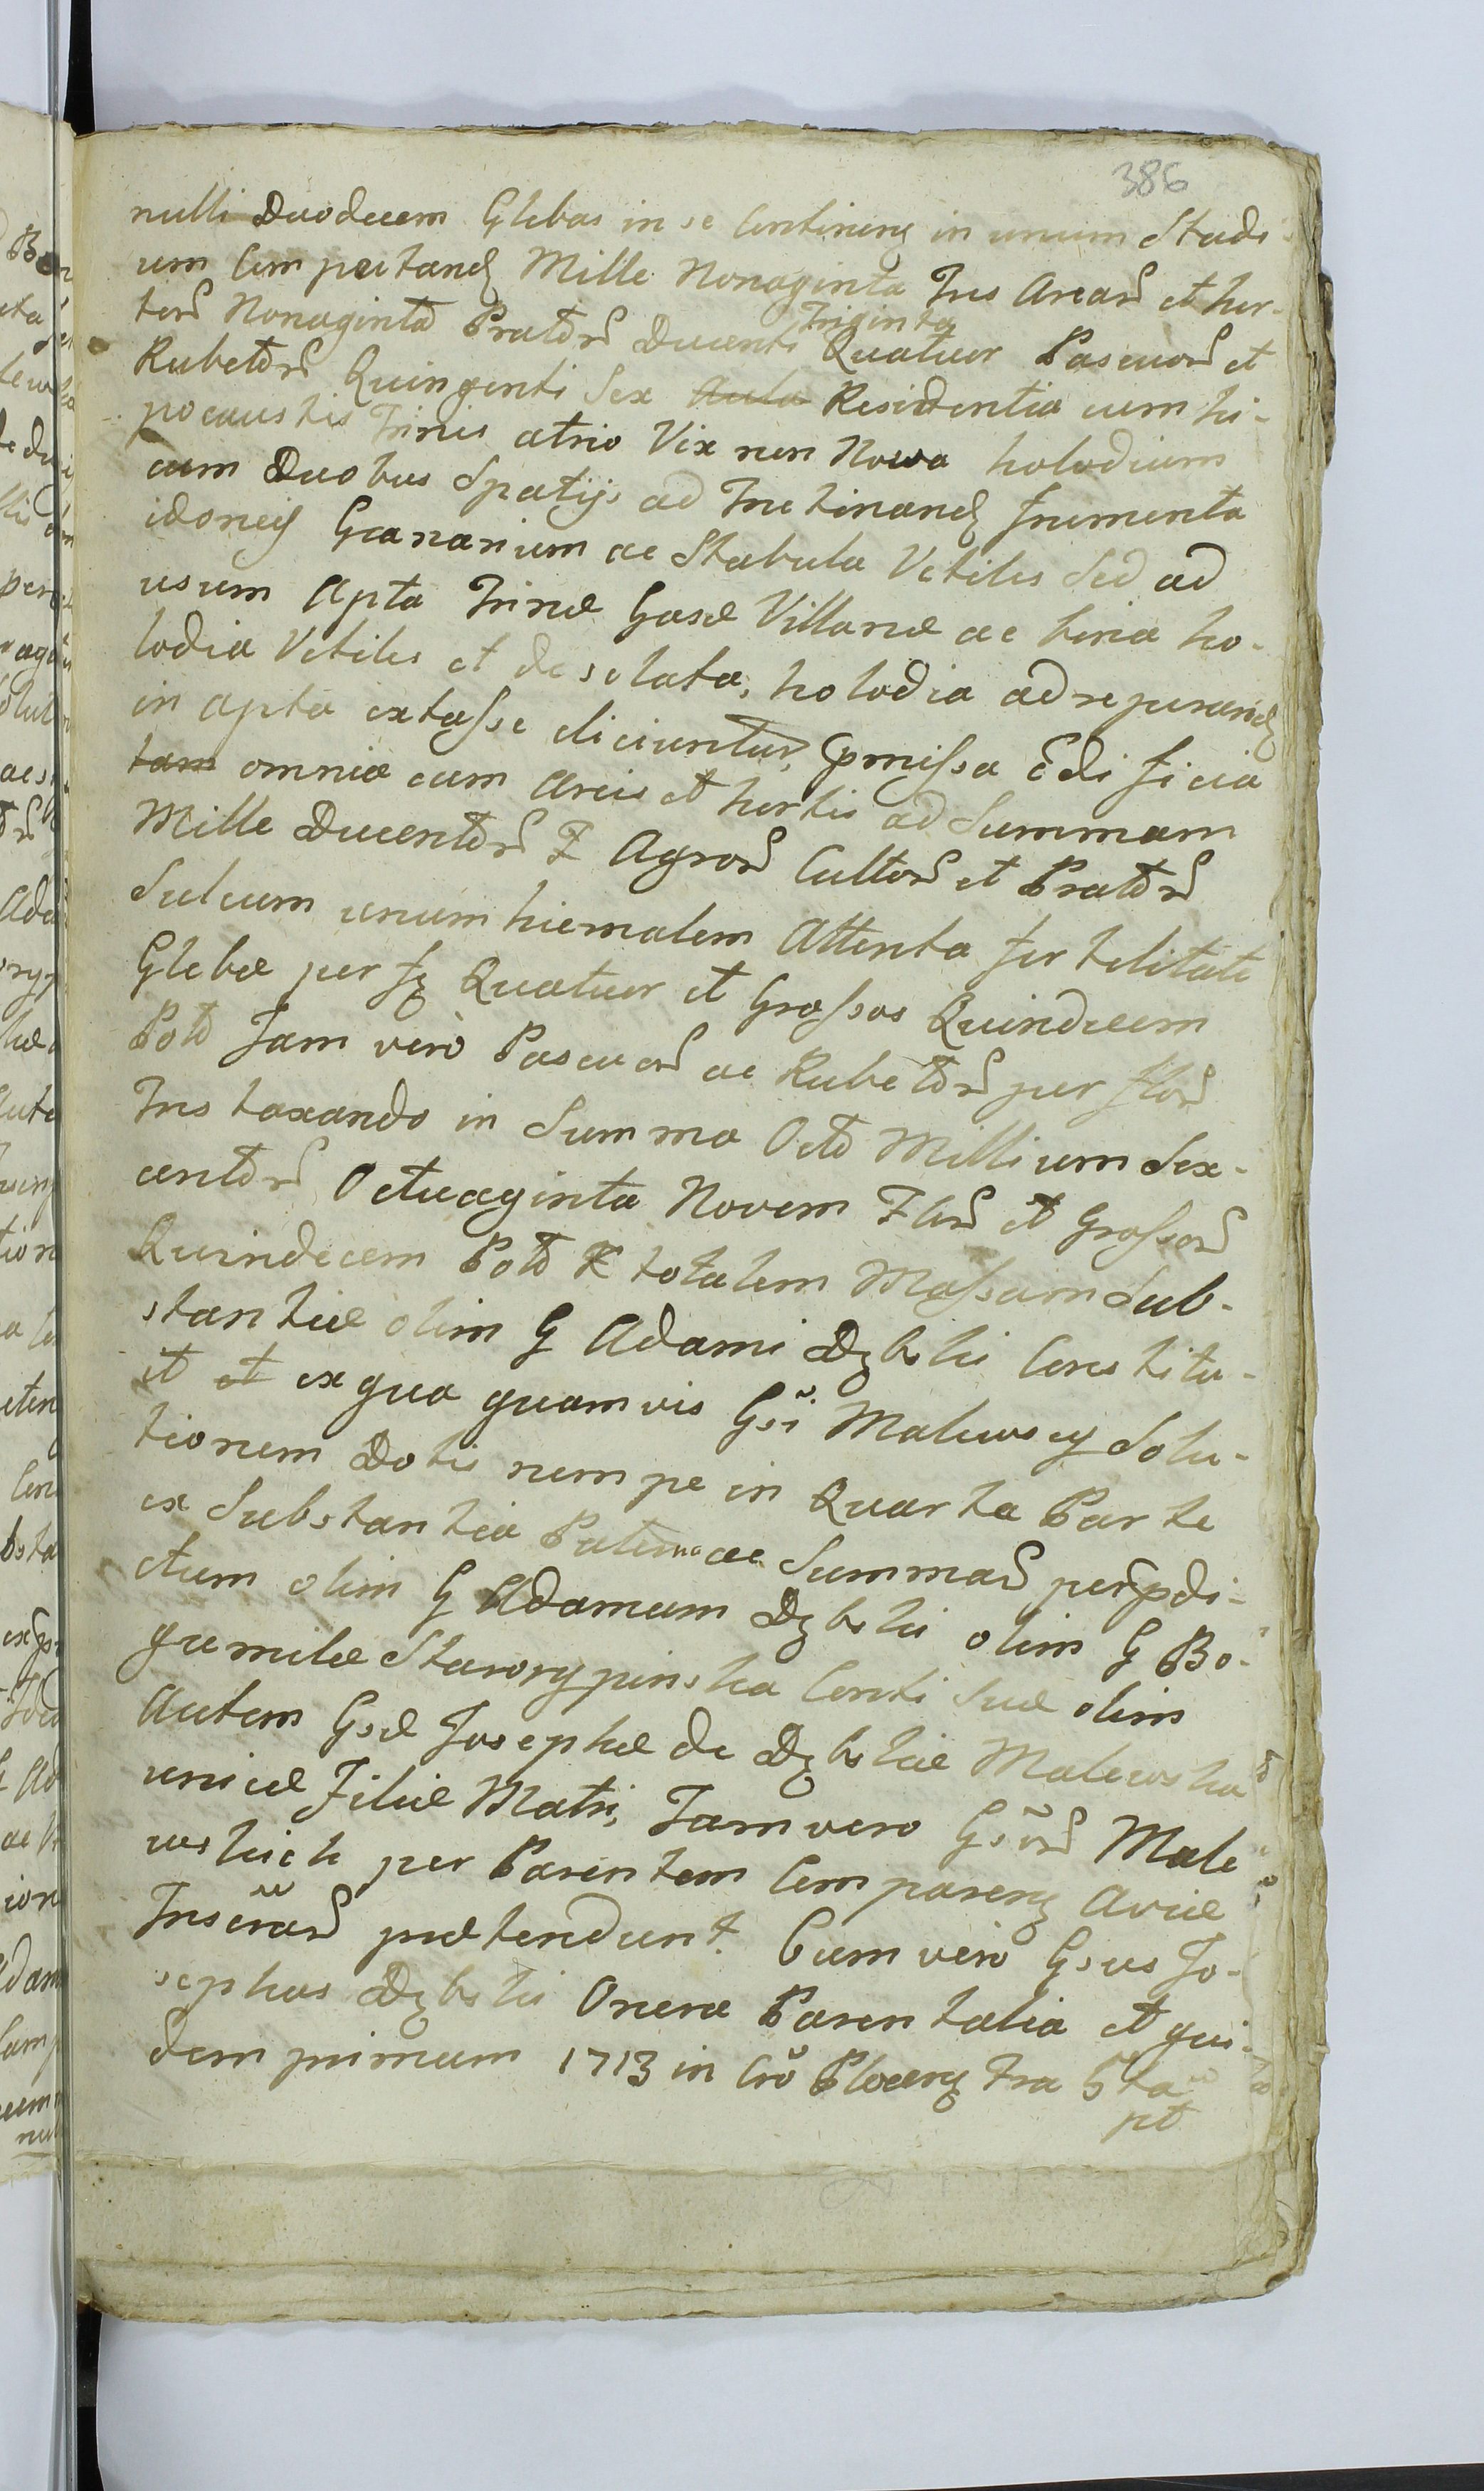 386
nulli Duodecem Glebas in se Continens in unum Stadi-
um Computand Mille Nonaginta Tres Areaꝝ et hor-
toꝝ Nonaginta Pratorꝝ Ducenti Triginta Quatuor Pascuoꝝ et
Rubetorꝝ Quingenti Sex Aula Residentia cum hi-
pocaustis Trinis atrio Vix non Nowa holodium
cum Duobus Spatijs ad Tretinand frumenta
idoneis Granarium ac Stabula Vetiles Sed ad
usum Apta Trinæ Gasæ Villanæ ac bina ho-
lodia Vetiles et desolata, holodia ad reparand
in apta extasse eliciuntur, pmissa Edificia
tam omnia cum Areis et hortis ad Summam
Mille Ducentorꝝ F Agroꝝ Cultoꝝ et Pratorꝝ
Sulcum unum hiemalem Attenta fertilitate
Glebæ per fl Quatuor et Grossos Quindecem
Pol Jam verò Pascuoꝝ ac Rubetorꝝ per floꝝ
Tres taxando in Summa Octo Millium Sex-
centorꝝ Octuaginta Novem Floꝝ et Grossoꝝ
Quindecem Pol totalem Massam Sub-
stantiæ olim G Adami Dębski Constitu-
it et ex qua quamvis Gsi Malewscy Solu-
tionem Dotis nempe in Quarta Parte
ex Substantia Paterna ac Summaꝝ per pdi-
ctum olim G Adamum Dębski olim G Bo-
gumilæ Starorypinska Conti Suæ olim
Autem Gsæ Josephæ de Dębskie Malewska
unicæ Filiæ Matri, Jam vero Gsorꝝ Male
wskich per Parentem Comparens Aviæ
Inscraꝝ prætendunt. Cum vero Gsus Jo-
sephus Dębski Onera Parentalia et qui-
dem primum 1713 in Cro Plocens Fra 5ta
pt